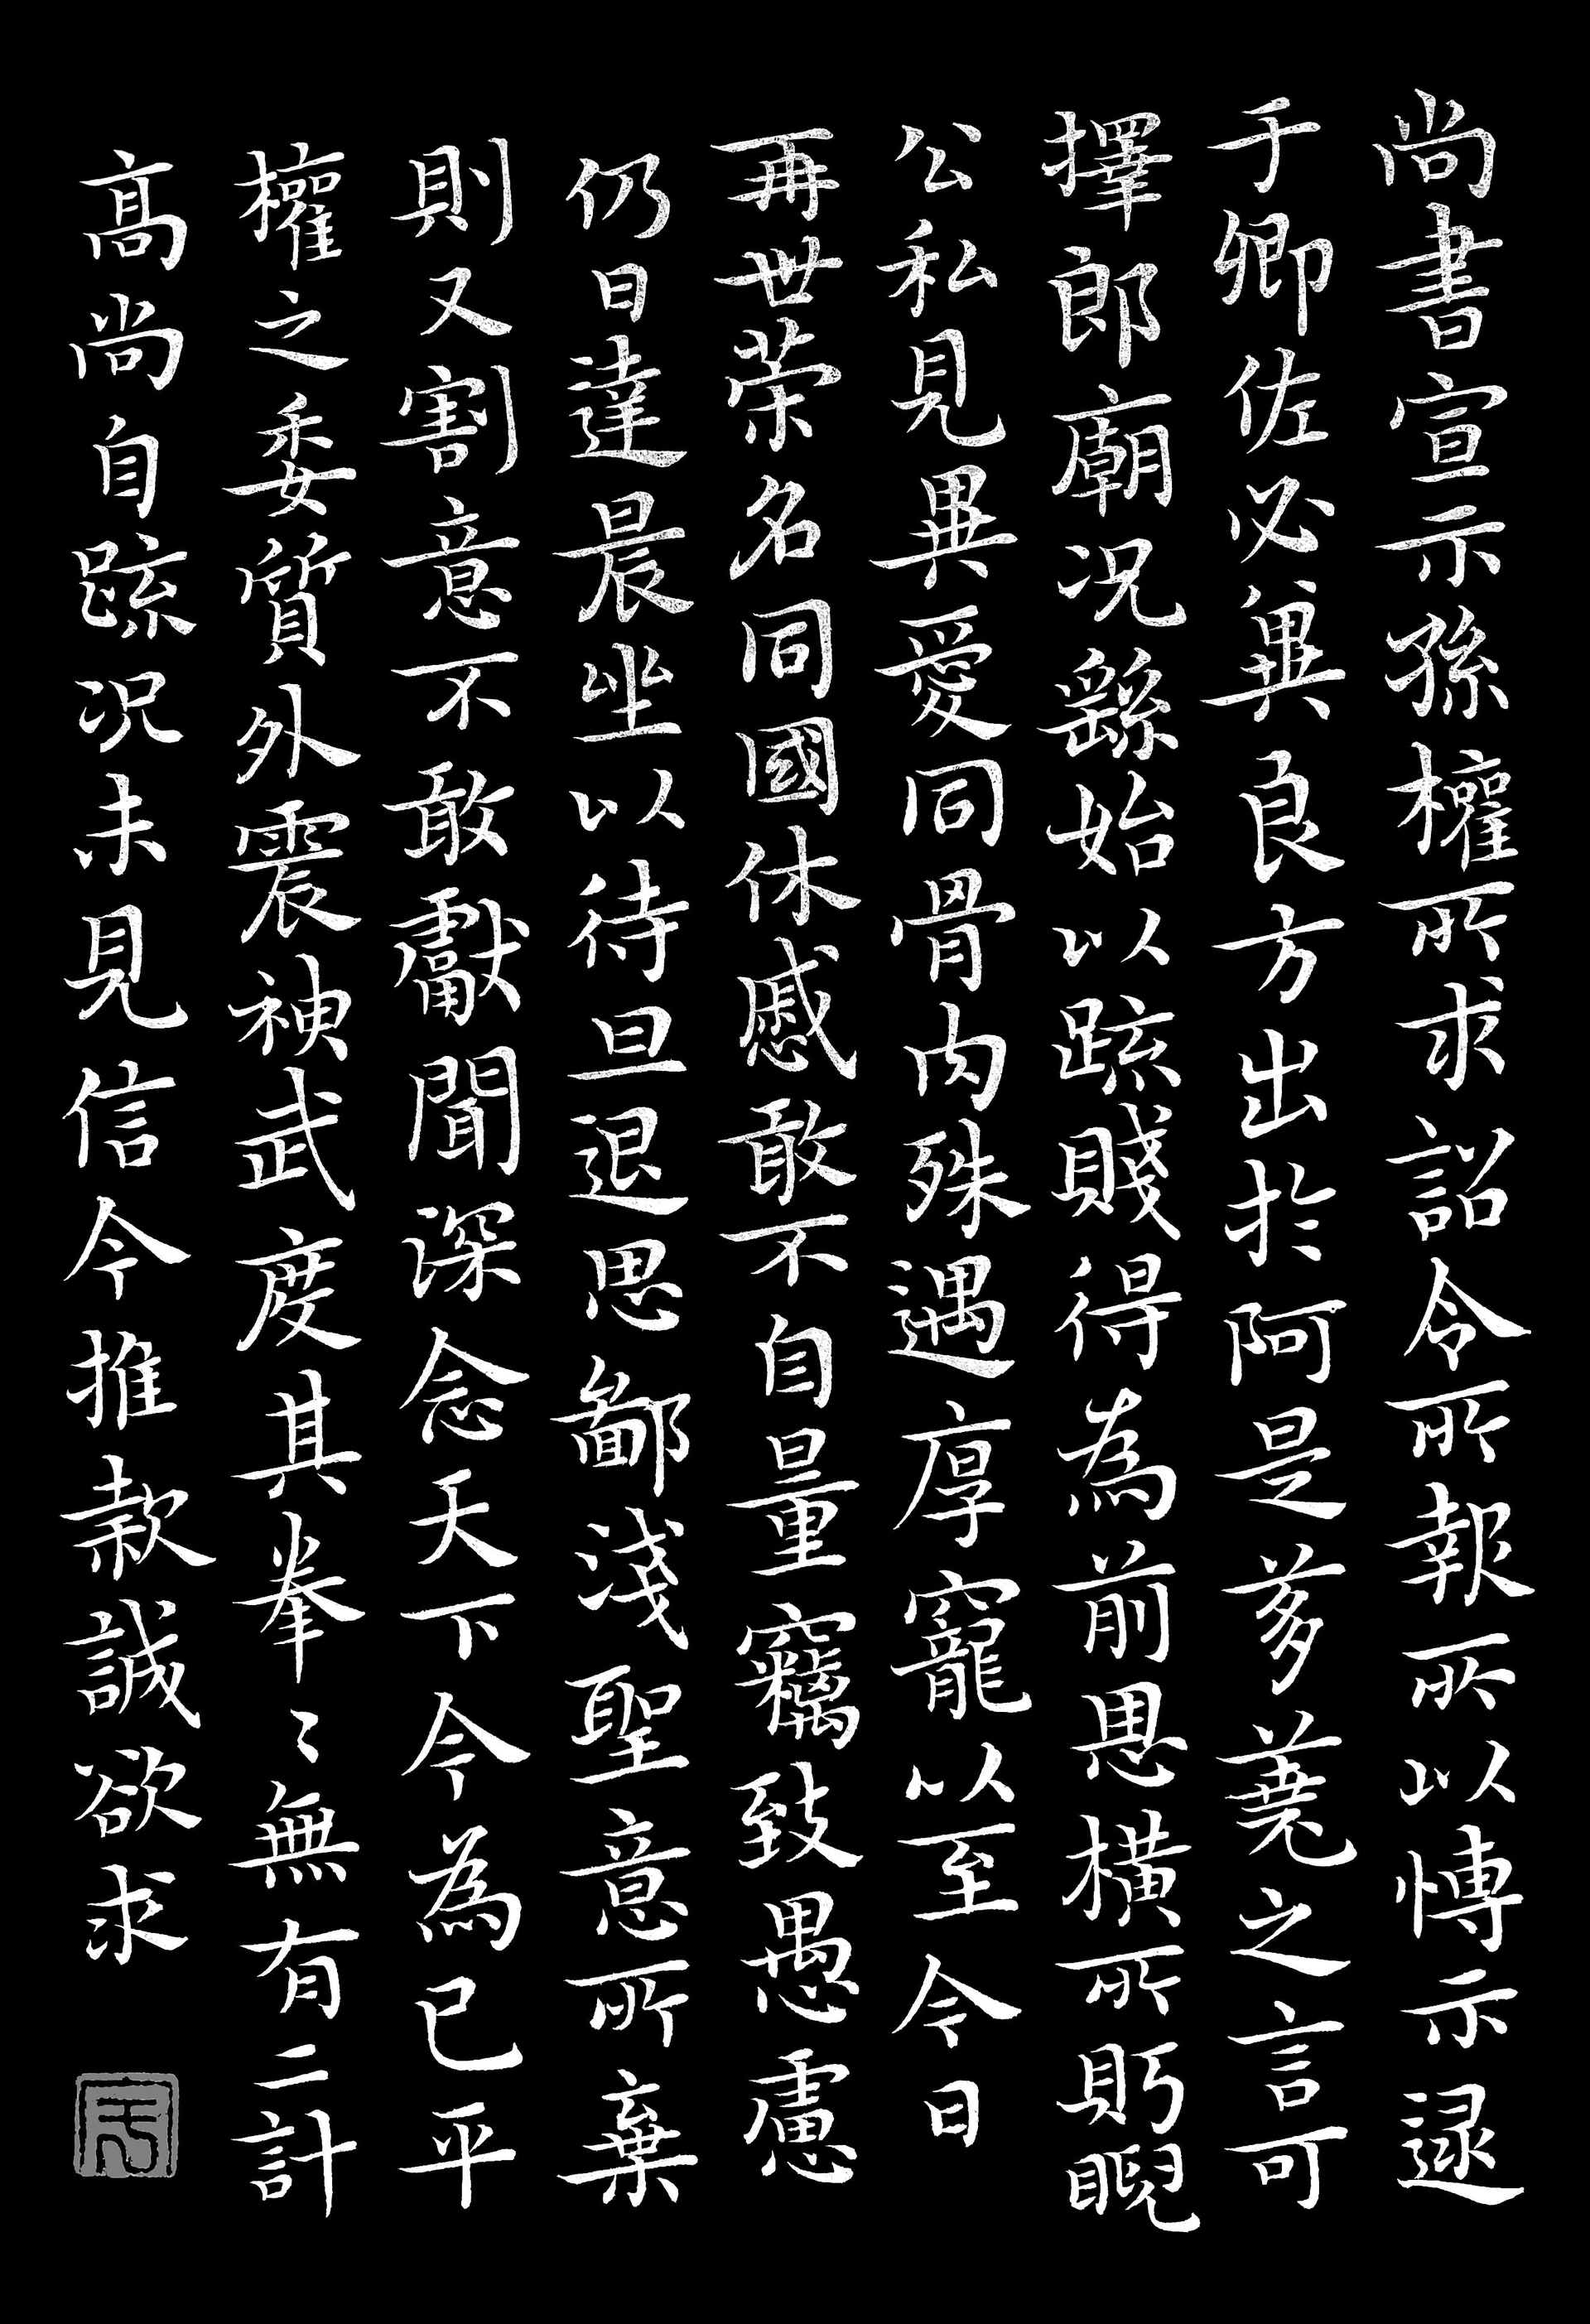 尚書宣示孫權所求詔令所報所以愽示逯
于卿佐必兾良方出於阿是芻蕘之言可
擇郎廟况繇始以踈賤得為前恩橫所眄睨
公私見異愛同骨肉殊遇厚寵以至今日
再世榮名同國休慼敢不自量竊致愚慮
仍日達晨坐以待旦退思鄙淺聖意所棄
則又割意不敢獻聞深念天下今為已平
權之委質外震神武度其拳〻無有二計
高尚自踈况未見信今推款誠欲求